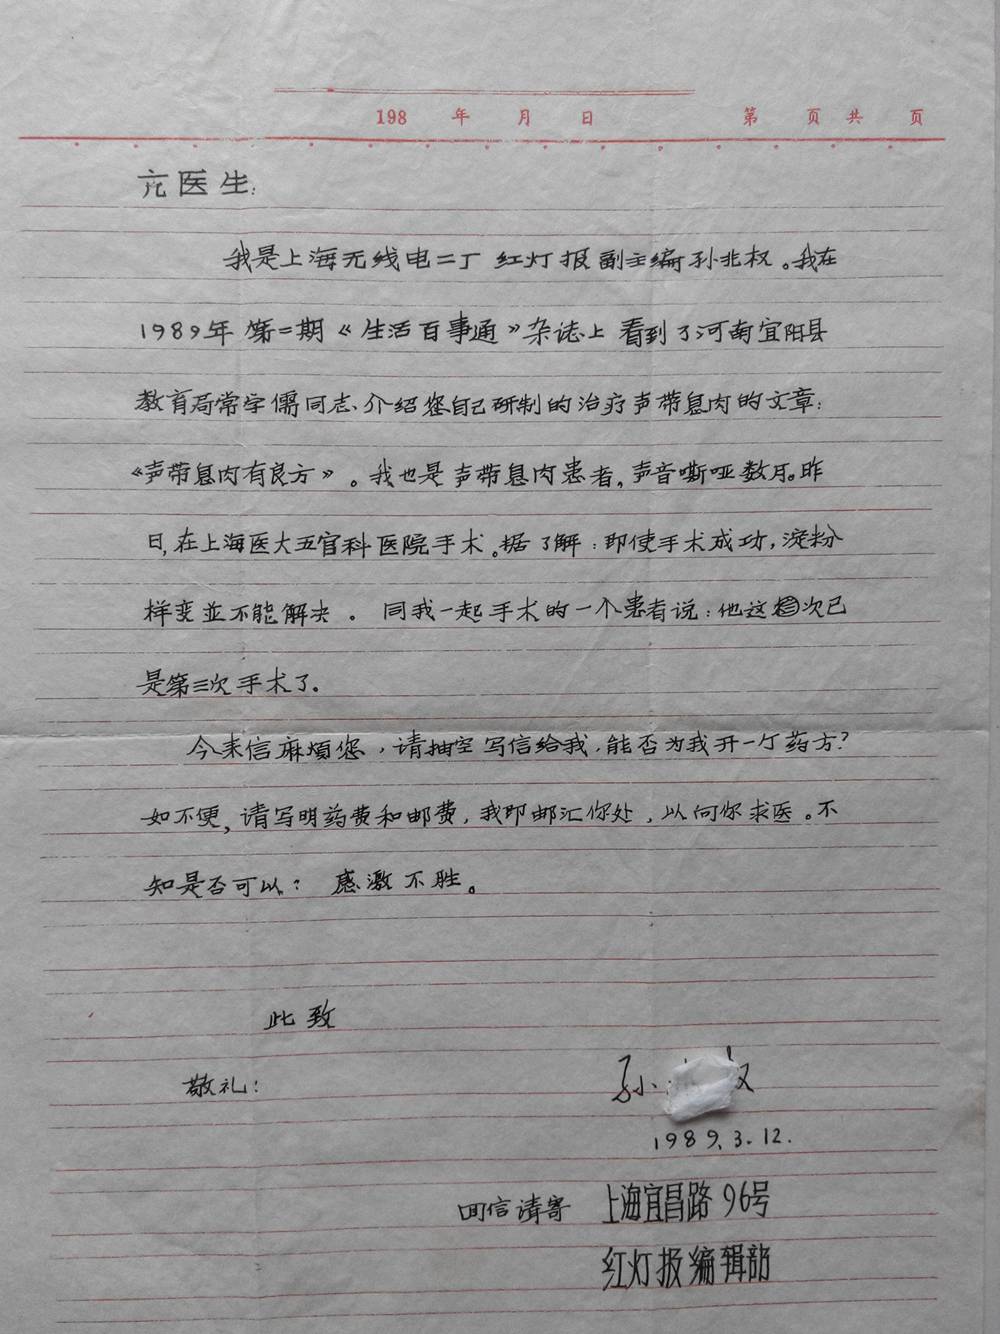 198 年 月 日 第 页 共 页
亢医生:
我是上海无线电二厂 红灯报副主编孙兆权。我在
1989年 第二期《生活百事通》杂誌上 看到了河南宜阳县
教育局常学儒同志、介绍您自己研制的治疗声带息肉的文章:
《声带息肉有良方》。我也是声带息肉患者,声音嘶哑数月。昨
日,在上海医大五官科医院手术。据了解:即使手术成功,淀粉
样变並不能解决。 同我一起手术的一个患者说:他这次已
是第三次手术了。
今来信麻煩您,请抽空写信给我,能否为我开一个药方?
如不便,请写明药费和邮费,我即邮汇你处,以向你求医。不
知是否可以? 感激不胜。
此致
敬礼!
孙 权
1989.3.12.
回信请寄 上海宜昌路96号
红灯报编辑部